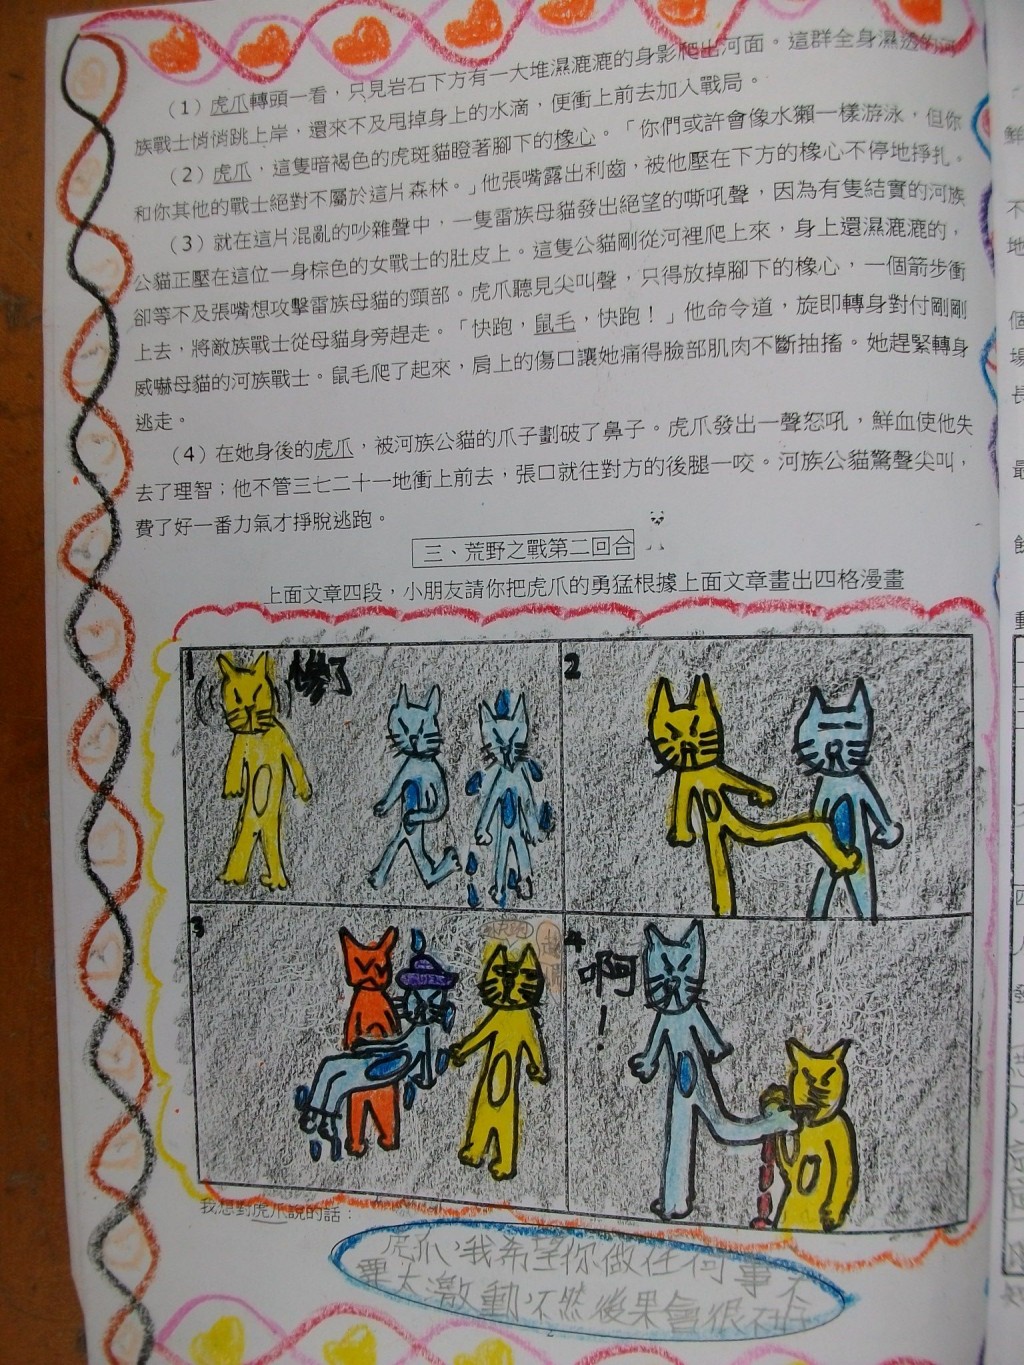 （1）虎爪轉頭一看，只見岩石下方有一大堆濕漉漉的身影爬出河面。這群全身濕透的河
族戰士悄悄跳上岸，還來不及甩掉身上的水滴，便衝上前去加入戰局。
（2）虎爪，這隻暗褐色的虎斑貓瞪著腳下的橡心。「你們或許會像水獺一樣游泳，但你
和你其他的戰士絕對不屬於這片森林。」他張嘴露出利齒，被他壓在下方的橡心不停地掙扎。
（3）就在這片混亂的吵雜聲中，一隻雷族母貓發出絕望的嘶吼聲，因為有隻結實的河族
公貓正壓在這位一身棕色的女戰士的肚皮上。這隻公貓剛從河裡爬上來，身上還濕漉漉的，
卻等不及張嘴想攻擊雷族母貓的頸部。虎爪聽見尖叫聲，只得放掉腳下的橡心，一個箭步衝
上去，將敵族戰士從母貓身旁趕走。「快跑，鼠毛，快跑！」他命令道，旋即轉身對付剛剛
威嚇母貓的河族戰士。鼠毛爬了起來，肩上的傷口讓她痛得臉部肌肉不斷抽搐。她趕緊轉身
逃走。
（4）在她身後的虎爪，被河族公貓的爪子劃破了鼻子。虎爪發出一聲怒吼，鮮血使他失
去了理智；他不管三七二十一地衝上前去，張口就往對方的後腿一咬。河族公貓驚聲尖叫，
費了好一番力氣才掙脫逃跑。
三、荒野之戰第二回合
上面文章四段，小朋友請你把虎爪的勇猛根據上面文章畫出四格漫畫
1
慘了
2
3
4
啊！
我想對虎爪說的話：
虎爪，我希望你做任何事不
要太激動，不然後果會很不好
2